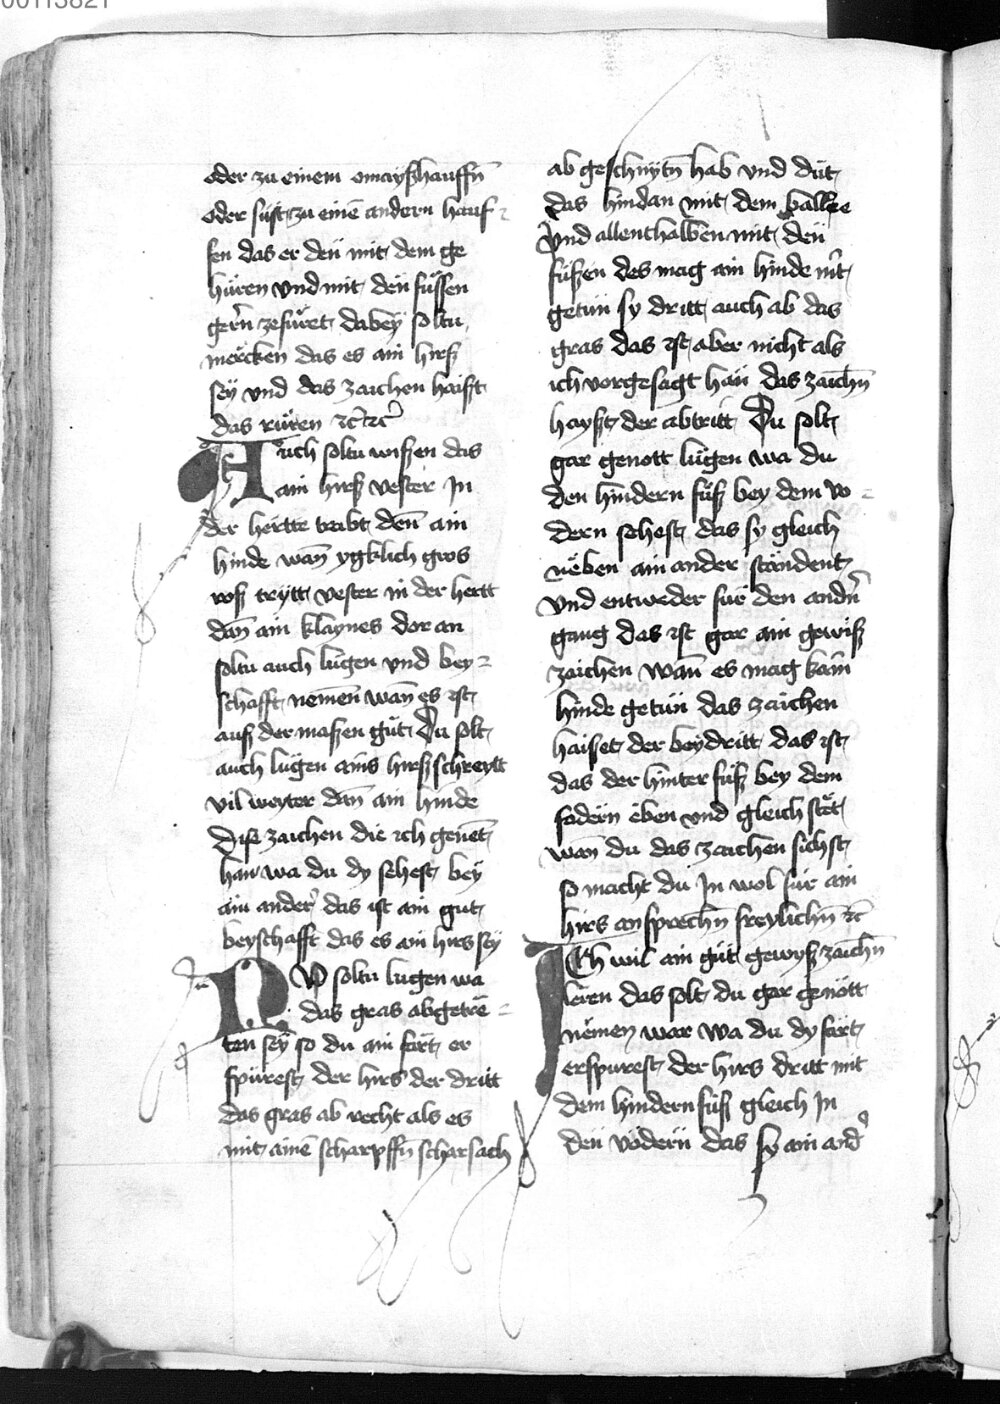 00113821
oder zu einem omayßhauffn̄
oder süst zu einē andern hauf
fen das er den̄ mit dem ge
hüren vnd mit den̄ füssen
gern̄ zefüret dabey soltu
mercken das es ain hirß
sey vnd das zaichen haist
das rüren ꝛc̄ ꝛc̄
Auch soltu wißen das
ain hirß vester In
der hertte trabt den̄ ain
hinde wan̄ ygklich gros
roß trytt vester in der hertt
dan̄ ain klaynes dor an
soltu auch lugen vnd bey
schafft nemen wan̄ es ist
auß der maßen güt Du solt
auch lügen ains hirß schreytt
vil weyter dan̄ ain hinde
Dise zaichen die ich genēt
han wa du dy sehest bey
ain ander das ist ain gut
beyschafft das es ain hirs sey
Nu
NW soltu lugen wa
das gras abgetrē
ten sey so du ain fart er
spürest der hirs der dritt
das gras ab recht als es
mit ainē scharpffn̄ scharsach
ab geschnytn̄ hab vnd düt
das hindan mit dem ballee
Vnd allenthalben mit den̄
füßen des mag ain hinde nit
getün sy dritt auch ab das
gras das ist aber nicht als
ich vorgesagt han̄ das zaichn̄
hayßt der abtritt Du solt
gar genott lügen wa du
den hindern füß bey dem vo
dern sehest das sy gleich
neben ain ander standent
vnd entweder für den andn̄
gang das ist gar ain gewiß
zaichen wan̄ es mag kain̄
hinde getün das zaichen
haiset der beydritt das ist
das der hinter füß bey dem
fodern eben vnd gleich stet
wan̄ du das zaichen sichst
so macht du In wol für ain
hirs ansprechn̄ freylichn̄ ꝛc̄
ICh wil ain güt gewyß zaichn̄
leren das solt du gar genott
nemen war wa du dy fart
erspurest der hirs dritt mit
dem hindern füß gleich In
den̄ vodern̄ das sy ain and